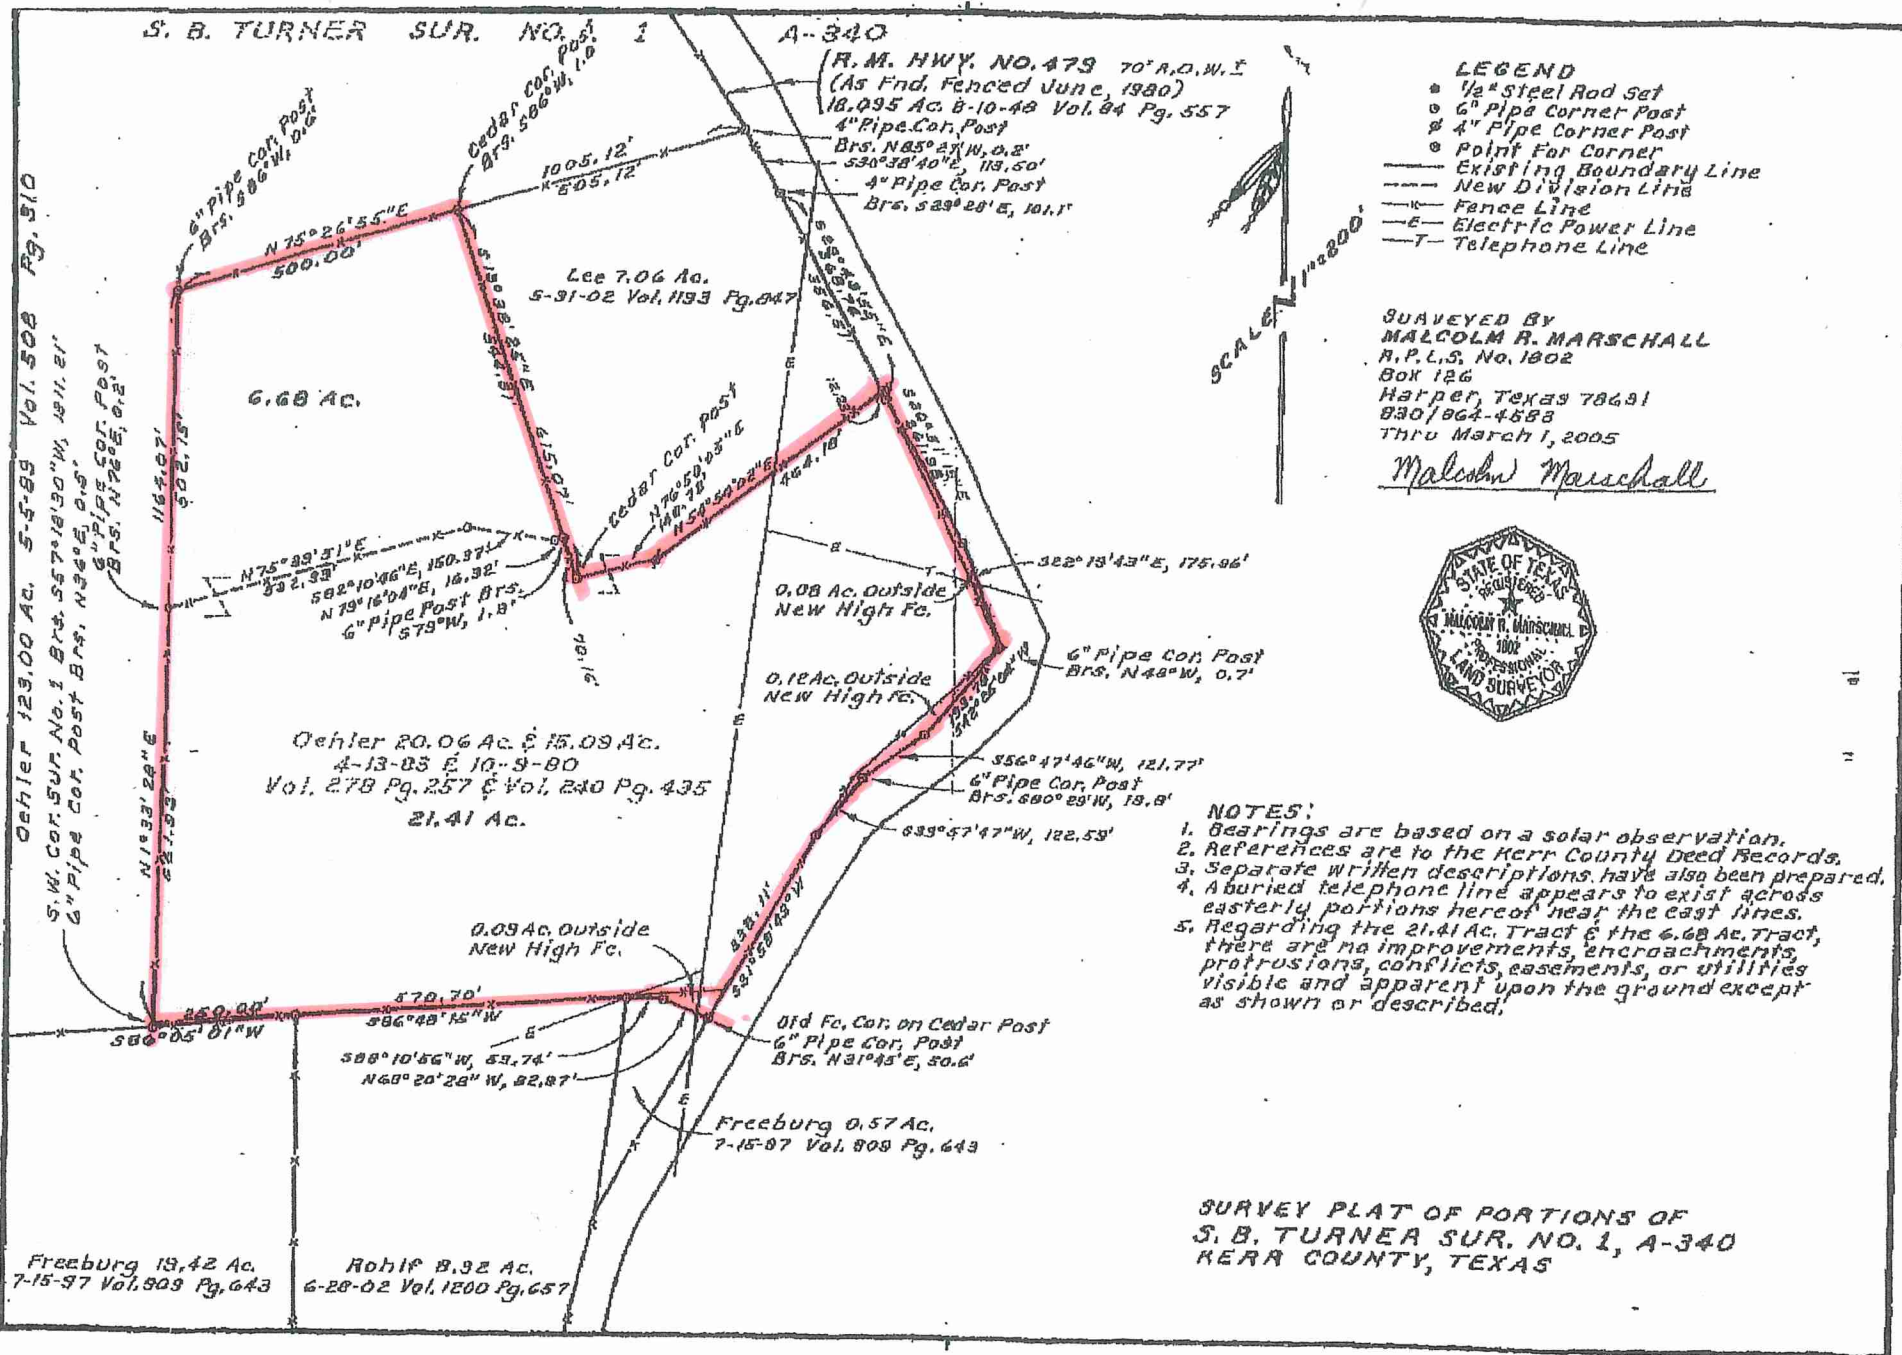 S. B. TURNER SUR. NO. 1 A-340
(R.M. HWY. NO. 479 70' R.O.W.±
(As Fnd. Fenced June, 1980)
18.095 Ac. 8-10-48 Vol. 84 Pg. 557
4" Pipe Cor. Post
Brs. N85°27'W, 0.2'
S30°38'40"E, 113.50'
4" Pipe Cor. Post
Brs. S29°28'E, 101.1'
6" Pipe Cor. Post
Brs. S86°W, 0.6'
Cedar Cor. Post
Brs. S86°W, 1.0'
1005.12'
505.12'
N 75°26'55"E
500.00'
Lee 7.06 Ac.
5-31-02 Vol. 1193 Pg. 847
6.68 Ac.
615.07'
Cedar Cor. Post
N76°50'05"E
N54°50'02"E
464.18'
1164.07'
502.15'
Oehler 123.00 Ac. 5-5-89 Vol. 508 Pg. 310
S.W. Cor. Sur. No. 1 Brs. S57°18'30"W, 1311.21'
6" Pipe Cor. Post Brs. N36°E, 0.5'
6" Pipe Cor. Post
Brs. N76°E, 0.2'
N75°39'51"E
532.33'
S82°10'46"E, 150.37'
N 79°16'04"E, 16.32'
6" Pipe Post Brs.
S79°W, 1.8'
70.16'
S22°19'43"E, 175.86'
0.08 Ac. Outside
New High Fc.
6" Pipe Cor. Post
Brs. N48°W, 0.7'
0.12 Ac. Outside
New High Fc.
S56°47'46"W, 121.77'
6" Pipe Cor. Post
Brs. S80°29'W, 19.8'
S39°57'47"W, 122.59'
Oehler 20.06 Ac. & 15.09 Ac.
4-13-83 & 10-9-80
Vol. 278 Pg. 257 & Vol. 240 Pg. 435
21.41 Ac.
N1°33'28"E
621.93'
0.09 Ac. Outside
New High Fc.
438.11'
S31°58'43"W
250.00'
S86°05'01"W
570.70'
S86°48'15"W
S88°10'56"W, 59.74'
N68°20'28"W, 82.87'
Old Fc. Cor. on Cedar Post
6" Pipe Cor. Post
Brs. N31°45'E, 50.6'
Freeburg 0.57 Ac.
7-15-97 Vol. 909 Pg. 643
Freeburg 19.42 Ac.
7-15-97 Vol. 909 Pg. 643
Rohlf 8.92 Ac.
6-28-02 Vol. 1200 Pg. 657
SCALE: 1"=200'
LEGEND
1/2" Steel Rod Set
6" Pipe Corner Post
4" Pipe Corner Post
Point For Corner
Existing Boundary Line
New Division Line
Fence Line
E Electric Power Line
T Telephone Line
SURVEYED BY
MALCOLM R. MARSCHALL
R.P.L.S. No. 1802
Box 126
Harper, Texas 78631
830/864-4588
Thru March 1, 2005
Malcolm Marschall
STATE OF TEXAS
REGISTERED
MALCOLM R. MARSCHALL
1802
PROFESSIONAL
LAND SURVEYOR
NOTES:
1. Bearings are based on a solar observation.
2. References are to the Kerr County Deed Records.
3. Separate written descriptions have also been prepared.
4. A buried telephone line appears to exist across
easterly portions hereof near the east lines.
5. Regarding the 21.41 Ac. Tract & the 6.68 Ac. Tract,
there are no improvements, encroachments,
protrusions, conflicts, easements, or utilities
visible and apparent upon the ground except
as shown or described.
SURVEY PLAT OF PORTIONS OF
S. B. TURNER SUR. NO. 1, A-340
KERR COUNTY, TEXAS